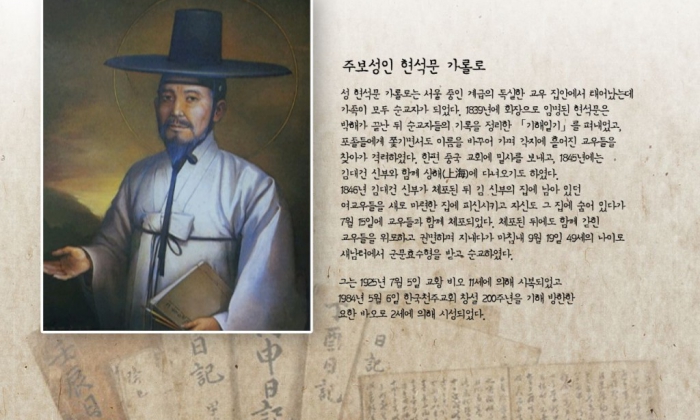 주보성인 현석문 가롤로
성 현석문 가롤로는 서울 중인 계급의 독실한 교우 집안에서 태어났는데
가족이 모두 순교자가 되었다. 1839년에 회장으로 임명된 현석문은
박해가 끝난 뒤 순교자들의 기록을 정리한 「기해일기」를 펴내었고,
포졸들에게 쫓기면서도 이름을 바꾸어 가며 각지에 흩어진 교우들을
찾아가 격려하였다. 한편 중국 교회에 밀사를 보내고, 1845년에는
김대건 신부와 함께 상해(上海)에 다녀오기도 하였다.
1846년 김대건 신부가 체포된 뒤 김 신부의 집에 남아 있던
여교우들을 새로 마련한 집에 피신시키고 자신도 그 집에 숨어 있다가
7월 15일에 교우들과 함께 체포되었다. 체포된 뒤에도 함께 갇힌
교우들을 위로하고 권면하며 지내다가 마침내 9월 19일 49세의 나이로
새남터에서 군문효수형을 받고 순교하였다.
그는 1925년 7월 5일 교황 비오 11세에 의해 시복되었고
1984년 5월 6일 한국천주교회 창설 200주년을 기해 방한한
요한 바오로 2세에 의해 시성되었다.
壬辰日
日記
申日記
酉日記
日記